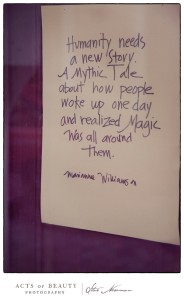 Humanity needs
a new Story.
A Mythic Tale
about how people
woke up one day
and realized Magic
was all around
them.
ACTS OF BEAUTY
PHOTOGRAPHS